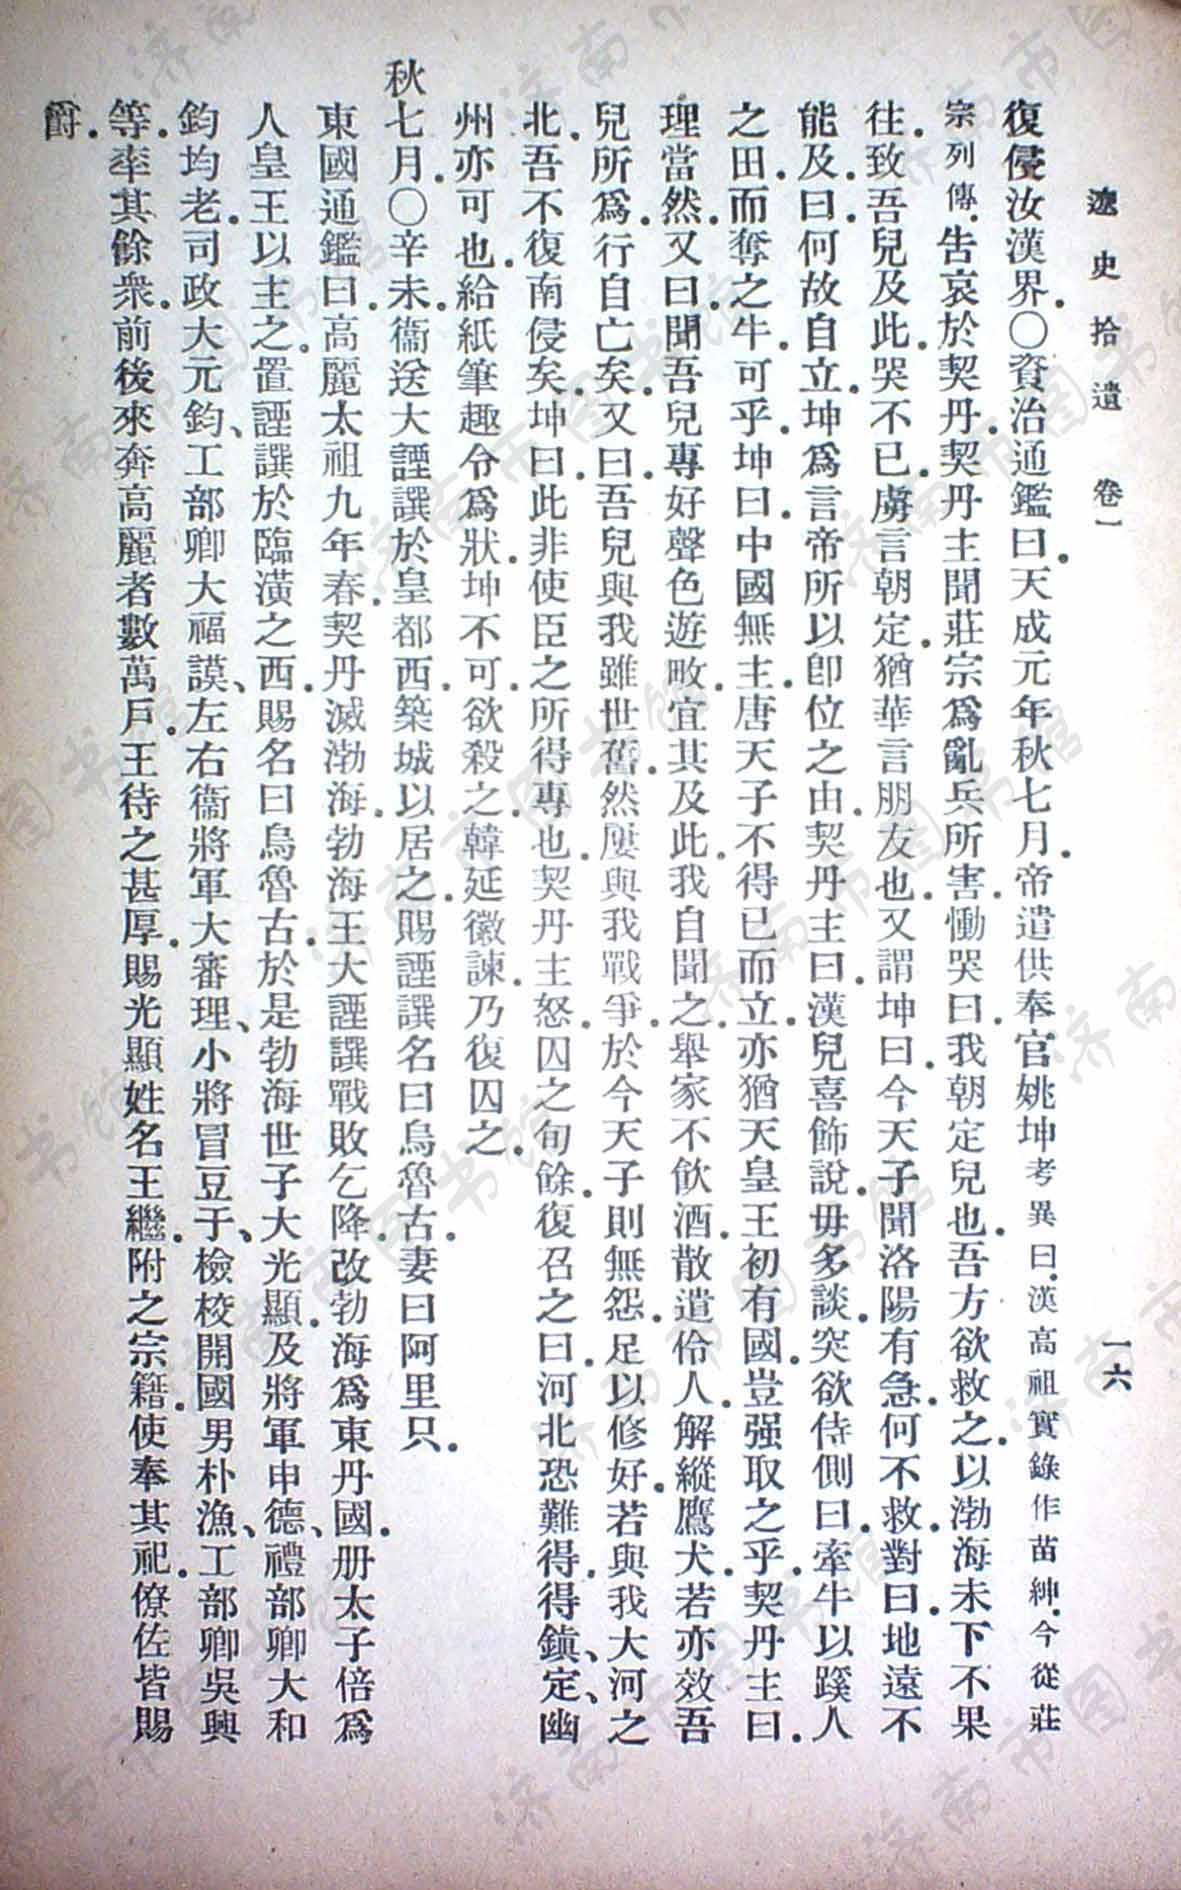 遼史拾遺　卷一　一六
復侵汝漢界。○資治通鑑曰。天成元年秋七月。帝遣供奉官姚坤考異曰。漢高祖實錄作苗紳。今從莊
宗列傳。告哀於契丹。契丹主聞莊宗爲亂兵所害。慟哭曰。我朝定兒也。吾方欲救之。以渤海未下。不果
往。致吾兒及此。哭不已。虜言朝定。猶華言朋友也。又謂坤曰。今天子聞洛陽有急。何不救。對曰。地遠不
能及。曰。何故自立。坤爲言帝所以卽位之由。契丹主曰。漢兒喜飾說。毋多談。突欲侍側曰。牽牛以蹊人
之田。而奪之牛。可乎。坤曰。中國無主。唐天子不得已而立。亦猶天皇王初有國。豈强取之乎。契丹主曰。
理當然。又曰。聞吾兒專好聲色遊畋。宜其及此。我自聞之。舉家不飮酒。散遣伶人。解縱鷹犬。若亦效吾
兒所爲。行自亡矣。又曰。吾兒與我雖世舊。然屢與我戰爭。於今天子則無怨。足以修好。若與我大河之
北。吾不復南侵矣。坤曰。此非使臣之所得專也。契丹主怒。囚之旬餘。復召之曰。河北恐難得。得鎭、定、幽
州亦可也。給紙筆趣令爲狀。坤不可。欲殺之。韓延徽諫。乃復囚之。
秋七月。○辛未。衞送大諲譔於皇都西。築城以居之。賜諲譔名曰烏魯古。妻曰阿里只。
東國通鑑曰。高麗太祖九年春。契丹滅渤海。勃海王大諲譔戰敗乞降。改勃海爲東丹國。册太子倍爲
人皇王以主之。置諲譔於臨潢之西。賜名曰烏魯古。於是勃海世子大光顯。及將軍申德、禮部卿大和
鈞均老。司政大元鈞、工部卿大福謨、左右衞將軍大審理、小將冒豆干、檢校開國男朴漁、工部卿吳興
等。率其餘衆。前後來奔高麗者數萬戶。王待之甚厚。賜光顯姓名王繼。附之宗籍。使奉其祀。僚佐皆賜
爵。